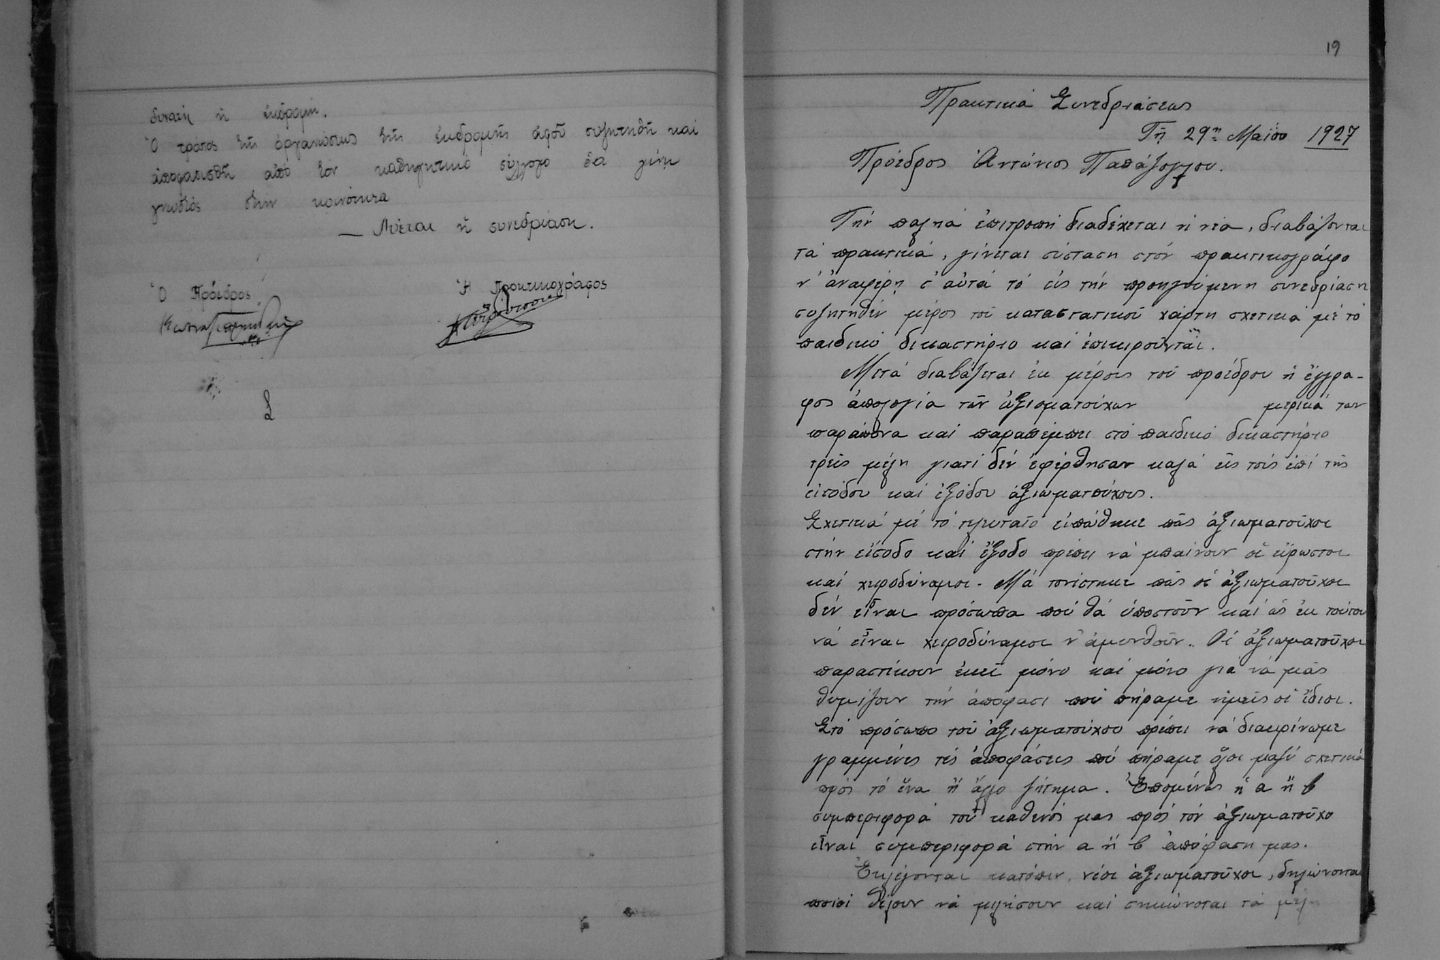 δυνατή ἡ ἐκδρομή.
Ὁ τρόπος τῆς ὀργανώσεως τῆς ἐκδρομῆς ἀφοῦ συζητηθῆ καί
ἀποφασισθῆ ἀπό τόν καθηγητικό σύλλογο θά γίνῃ
γνωστός στήν κοινότητα
— Λύεται ἡ συνεδρίαση.
Ὁ Πρόεδρος
Ἡ Πρακτικογράφος
19
Πρακτικά Συνεδριάσεως
Τῇ 29ῃ Μαΐου 1927
Πρόεδρος Ἀντώνιος Παπάζογλου.
Τήν παληά ἐπιτροπή διαδέχεται ἡ νέα, διαβάζονται
τά πρακτικά, γίνεται σύσταση στόν πρακτικογράφο
ν' ἀναφέρῃ σ' αὐτά τό εἰς τήν προηγούμενη συνεδρίαση
συζητηθέν μέρος τοῦ καταστατικοῦ χάρτη σχετικά μέ τό
παιδικό δικαστήριο καί ἐπικυροῦνται.
Μετά διαβάζεται ἐκ μέρους τοῦ προέδρου ἡ ἔγγρα-
φος ἀπολογία τῶν ἀξιωματούχων μερικά των
παράπονα καί παραπέμπει στό παιδικό δικαστήριο
τρεῖς μέλη γιατί δέν ἐφέρθησαν καλά εἰς τούς ἐπί τῆς
εἰσόδου καί ἐξόδου ἀξιωματούχους.
Σχετικά μέ τό τελευταῖο εἰπώθηκε πῶς ἀξιωματοῦχοι
στήν εἴσοδο καί ἔξοδο πρέπει νά μπαίνουν οἱ εὔρωστοι
καί χειροδύναμοι. Μά τονίστηκε πῶς οἱ ἀξιωματοῦχοι
δέν εἶναι πρόσωπα πού θά ὑποστοῦν καί ὡς ἐκ τούτου
νά εἶναι χειροδύναμοι ν' ἀμυνθοῦν. Οἱ ἀξιωματοῦχοι
παραστέκουν ἐκεῖ μόνο καί μόνο γιά νά μᾶς
θυμίζουν τήν ἀπόφασι πού πήραμε ἡμεῖς οἱ ἴδιοι.
Στό πρόσωπο τοῦ ἀξιωματούχου πρέπει νά διακρίνωμε
γραμμένες τές ἀποφάσεις πού πήραμε ὅλοι μαζύ σχετικά
πρός τό ἕνα ἤ ἄλλο ζήτημα. Ἑπομένως ἡ α ἤ β
συμπεριφορά τοῦ καθενός μας πρός τόν ἀξιωματοῦχο
εἶναι συμπεριφορά στήν α ἤ β ἀπόφαση μας.
Ἐκλέγονται κατόπιν νέοι ἀξιωματοῦχοι, δηλώνονται
ποιοί θέλουν νά μιλήσουν καί σηκώνονται τά μέλη